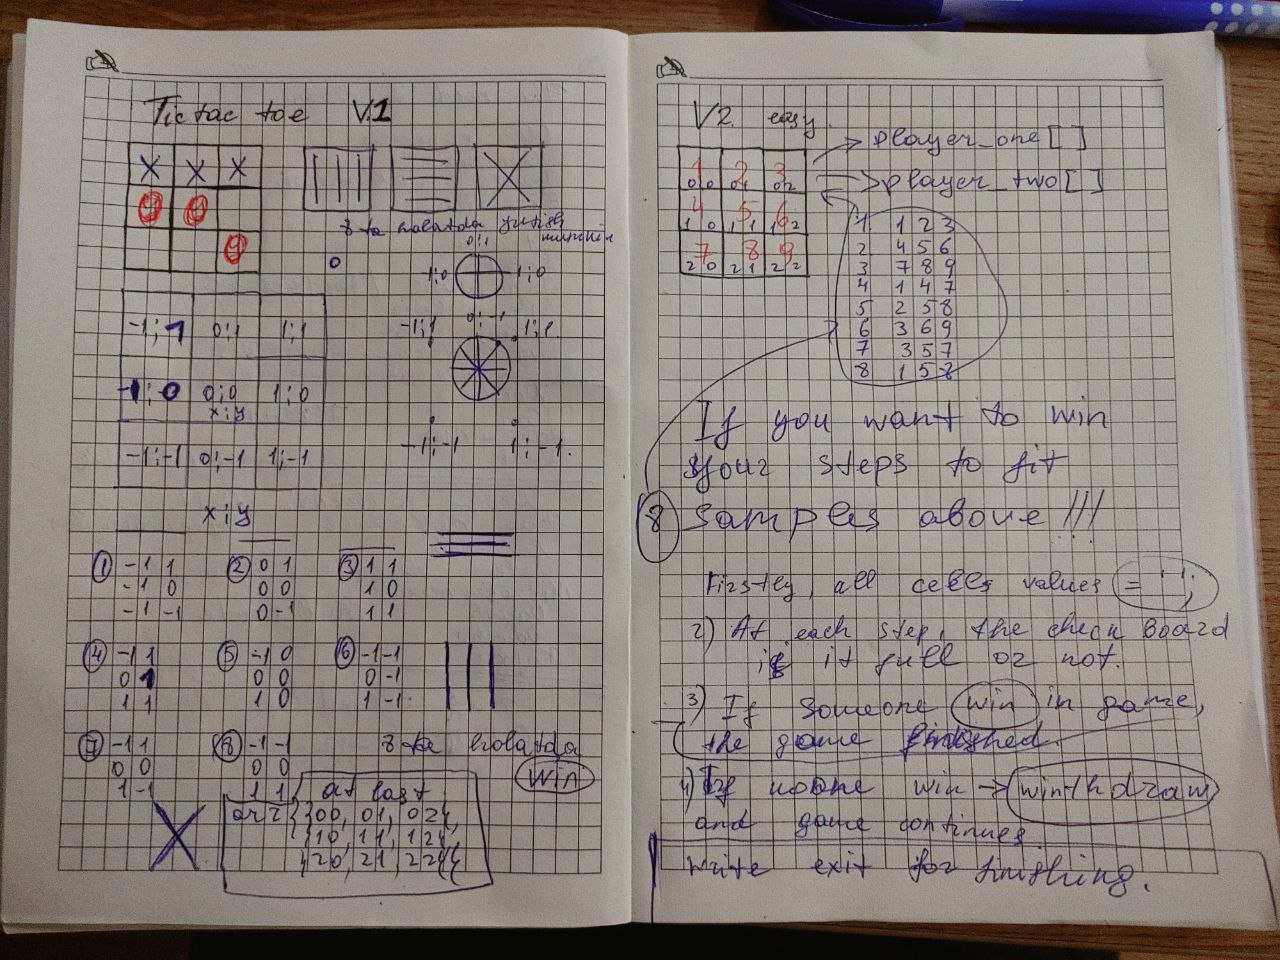 Tictac toe V.1
X X X
8 ta holatda yutish mumkin
0;1
-1;0 1;0
-1;1 0;-1 1;1
-1;-1 1;-1.
-1;1 0;1 1;1
-1;0 0;0 1;0
x;y
-1;-1 0;-1 1;-1
x;y
① -1 1
-1 0
-1 -1
② 0 1
0 0
0 -1
③ 1 1
1 0
1 1
④ -1 1
0 1
1 1
⑤ -1 0
0 0
1 0
⑥ -1 -1
0 -1
1 -1
⑦ -1 1
0 0
1 -1
⑧ -1 -1
0 0
1 1
8 ta holatda
win
at last
arr {{00, 01, 02},
{10, 11, 12},
{20, 21, 22}}
V2 easy
player_one[ ]
player_two[ ]
1 2 3
00 01 02
4 5 6
10 11 12
7 8 9
20 21 22
1 1 2 3
2 4 5 6
3 7 8 9
4 1 4 7
5 2 5 8
6 3 6 9
7 3 5 7
8 1 5 8
If you want to win
your steps to fit
8 samples above!!!
Firstly, all cells values = ' ';
2) At each step, the check board
is it full or not.
3) If someone win in game,
the game finished.
4) If noone win → winthdraw
and game continues
Write exit for finishing.